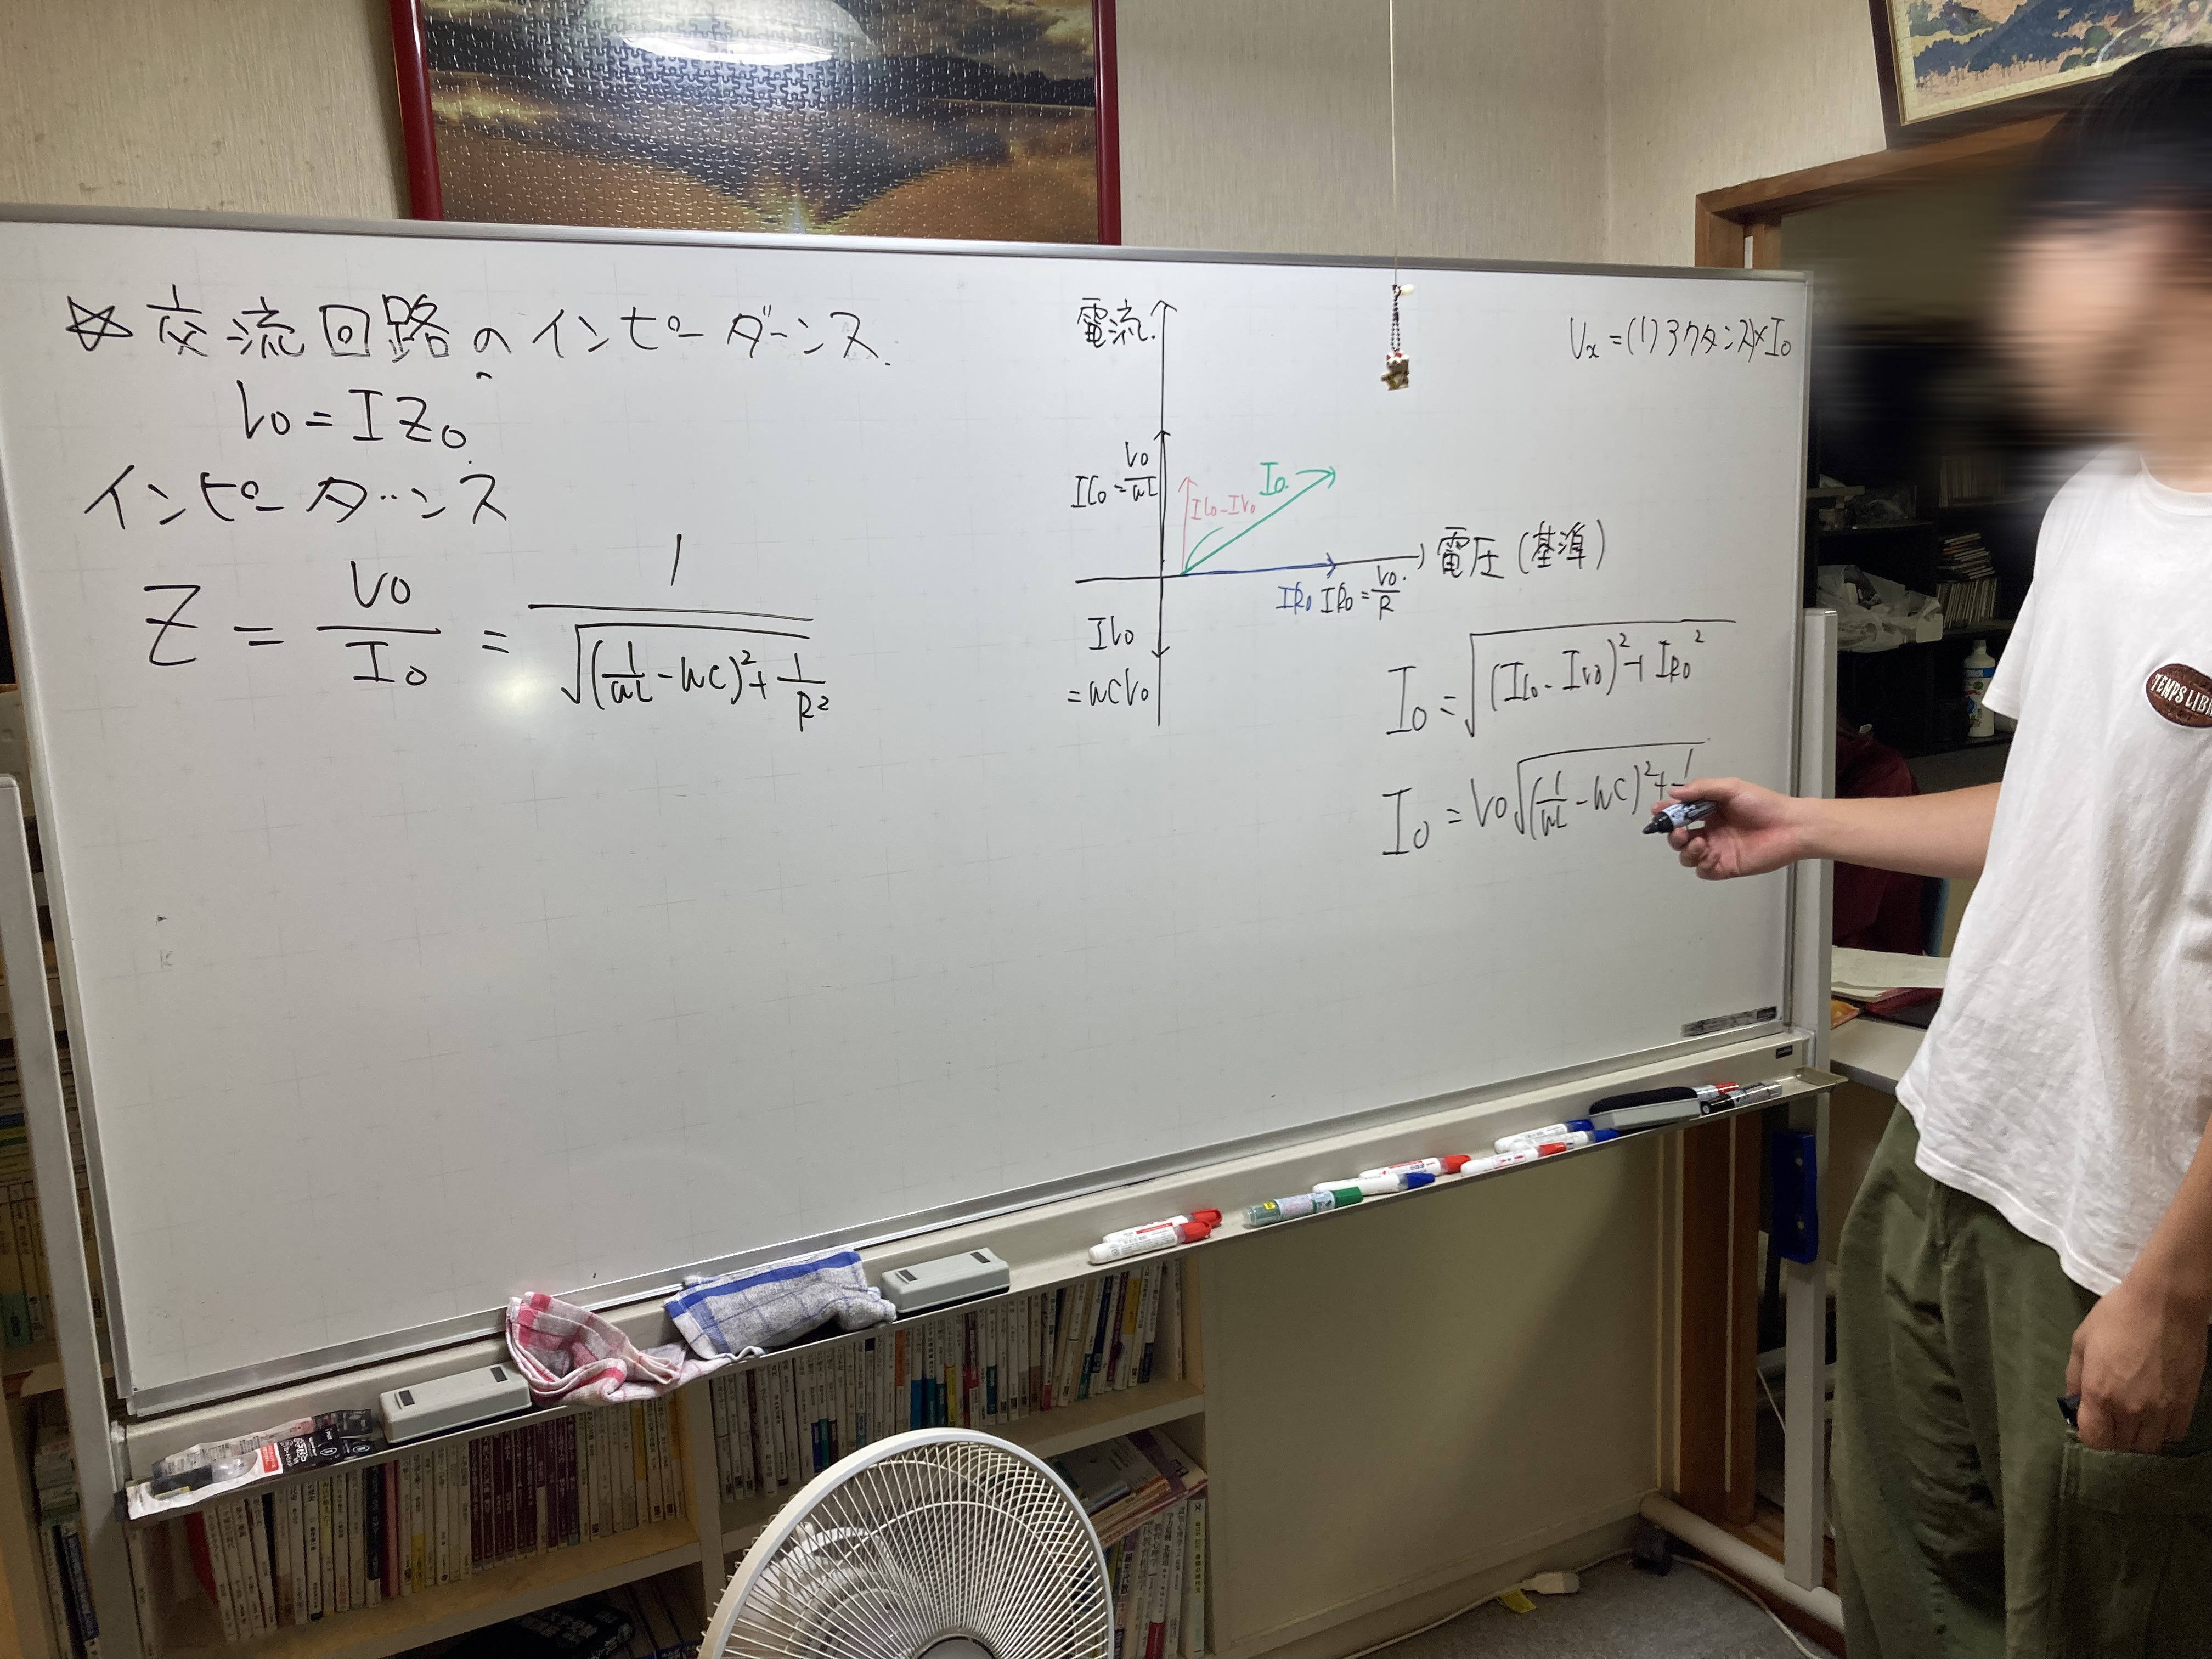 ☆交流回路のインピーダンス.
V0 = IZ0
インピーダンス
Z = V0/I0 = 1/√((1/ωL - ωC)²+1/R²)
電流
IL0 = V0/ωL
IL0-IV0
I0
電圧(基準)
IR0 IR0 = V0/R
IV0
= ωCV0
Vx = (リアクタンス)×I0
I0 = √((IL0 - IV0)²+IR0²)
I0 = V0√((1/ωL - ωC)²+1
TEMPS LIB